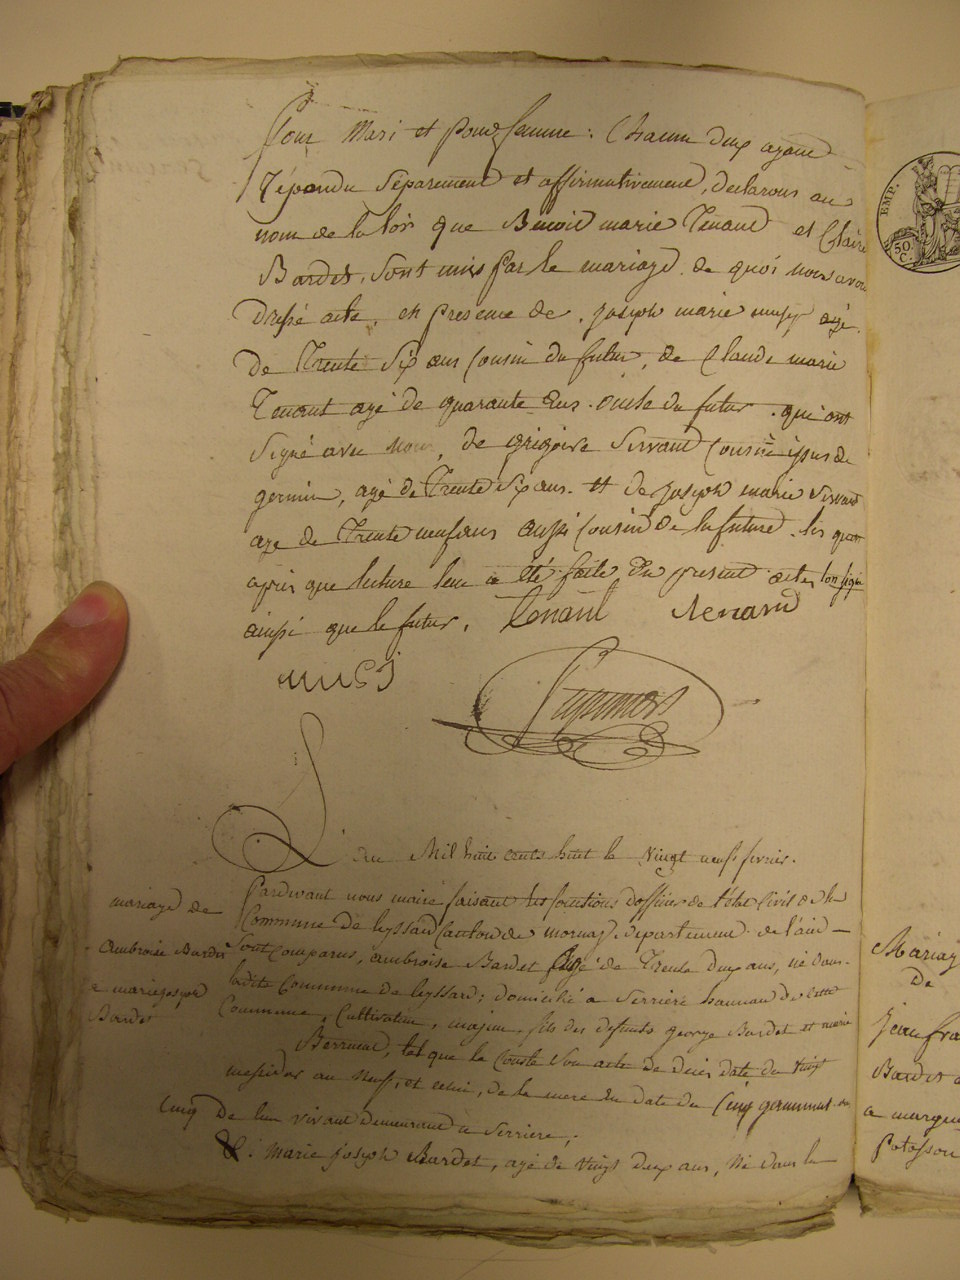 pour Mari et pour femme. Chacun d'eux ayant
répondu séparement et affirmativement, declarons au
nom de la loi que Benoit marie Tenand et Claire
Bardet, sont unis par le mariage. de quoi nous avons
dressé acte. en presence de joseph marie musy agé
de trente six ans cousin du futur, de Claude marie
Tenant agé de quarante ans. oncle du futur. qui ont
signé avec nous, de grigoire Servand Cousin issus de
germin, agé de trente six ans. et de joseph marie Servand
age de trente neuf ans aussi Cousin de la future. les quels
après que lecture leur a été faite du present acte, l'on signé
ainsi que le futur. Tenant Renand
MUCI
L'an Mil huit cents huit le vingt neuf fevrier.
Pardevant nous maire faisant les fonctions d'officier de l'état Civil de la
Commune de leyssard Canton de mornay, departement de l'ain
mariage de
Sont Comparus, ambroise Bardet agé de trente deux ans, né dans
ambroise Bardet
ladite Commune de leyssard; domicilié a Serriere hameau de cette
a marie joseph
Commune, Cultivateur, majeur, fils des defunts george Bardet et marie
Bardet
tel que le Conste son acte de deces date du vingt
messidor an neuf, et celui, de la mere en date du Cinq germinal an
Cinq de leur vivant demeurant a Serriere;
&. Marie joseph Bardet, agé de vingt deux ans, né dans la
EMP.
50
C.
Mariag
De
jean fra
Bardet
a margu